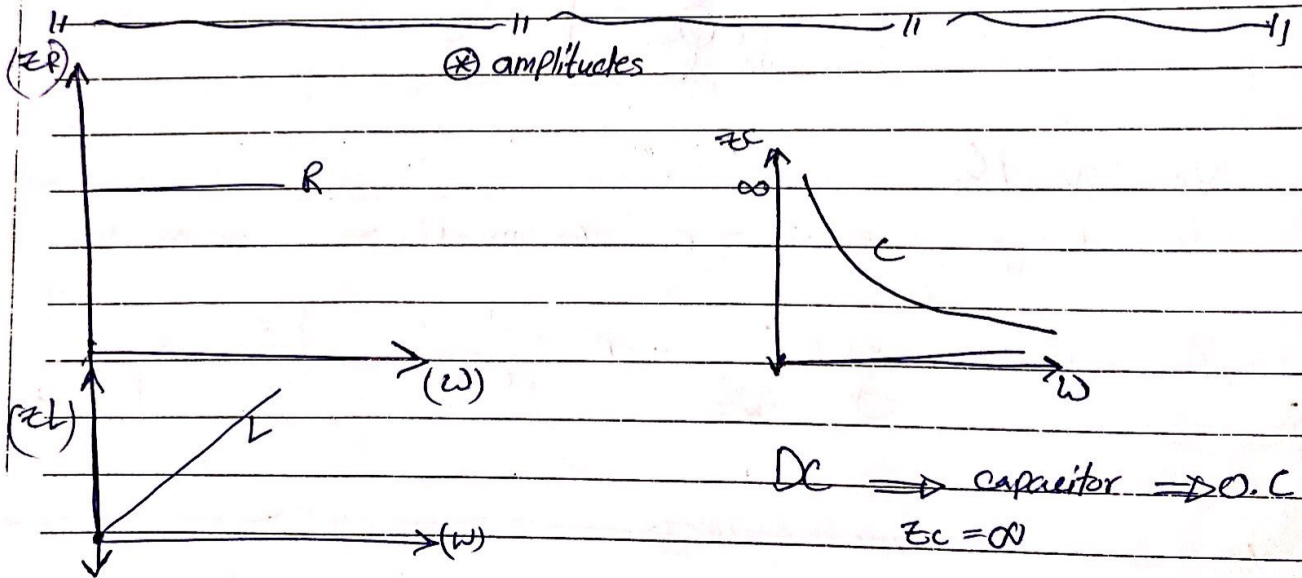 ⊛ amplitudes
(ZR)
R
(ω)
ZC
∞
C
ω
(ZL)
L
(ω)
DC ⇒ capacitor ⇒ O.C
Zc = ∞